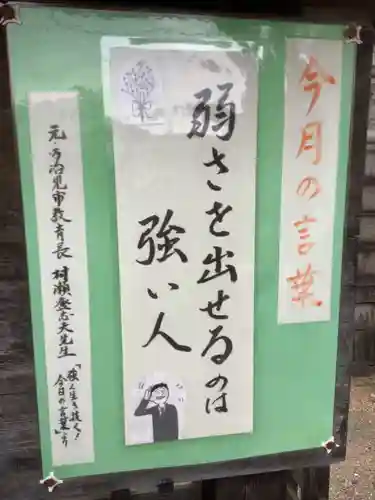 今月の言葉
弱さを出せるのは
強い人
元・多治見市教育長 村瀬慶志夫先生
「強く生き抜く!
今日の言葉」より